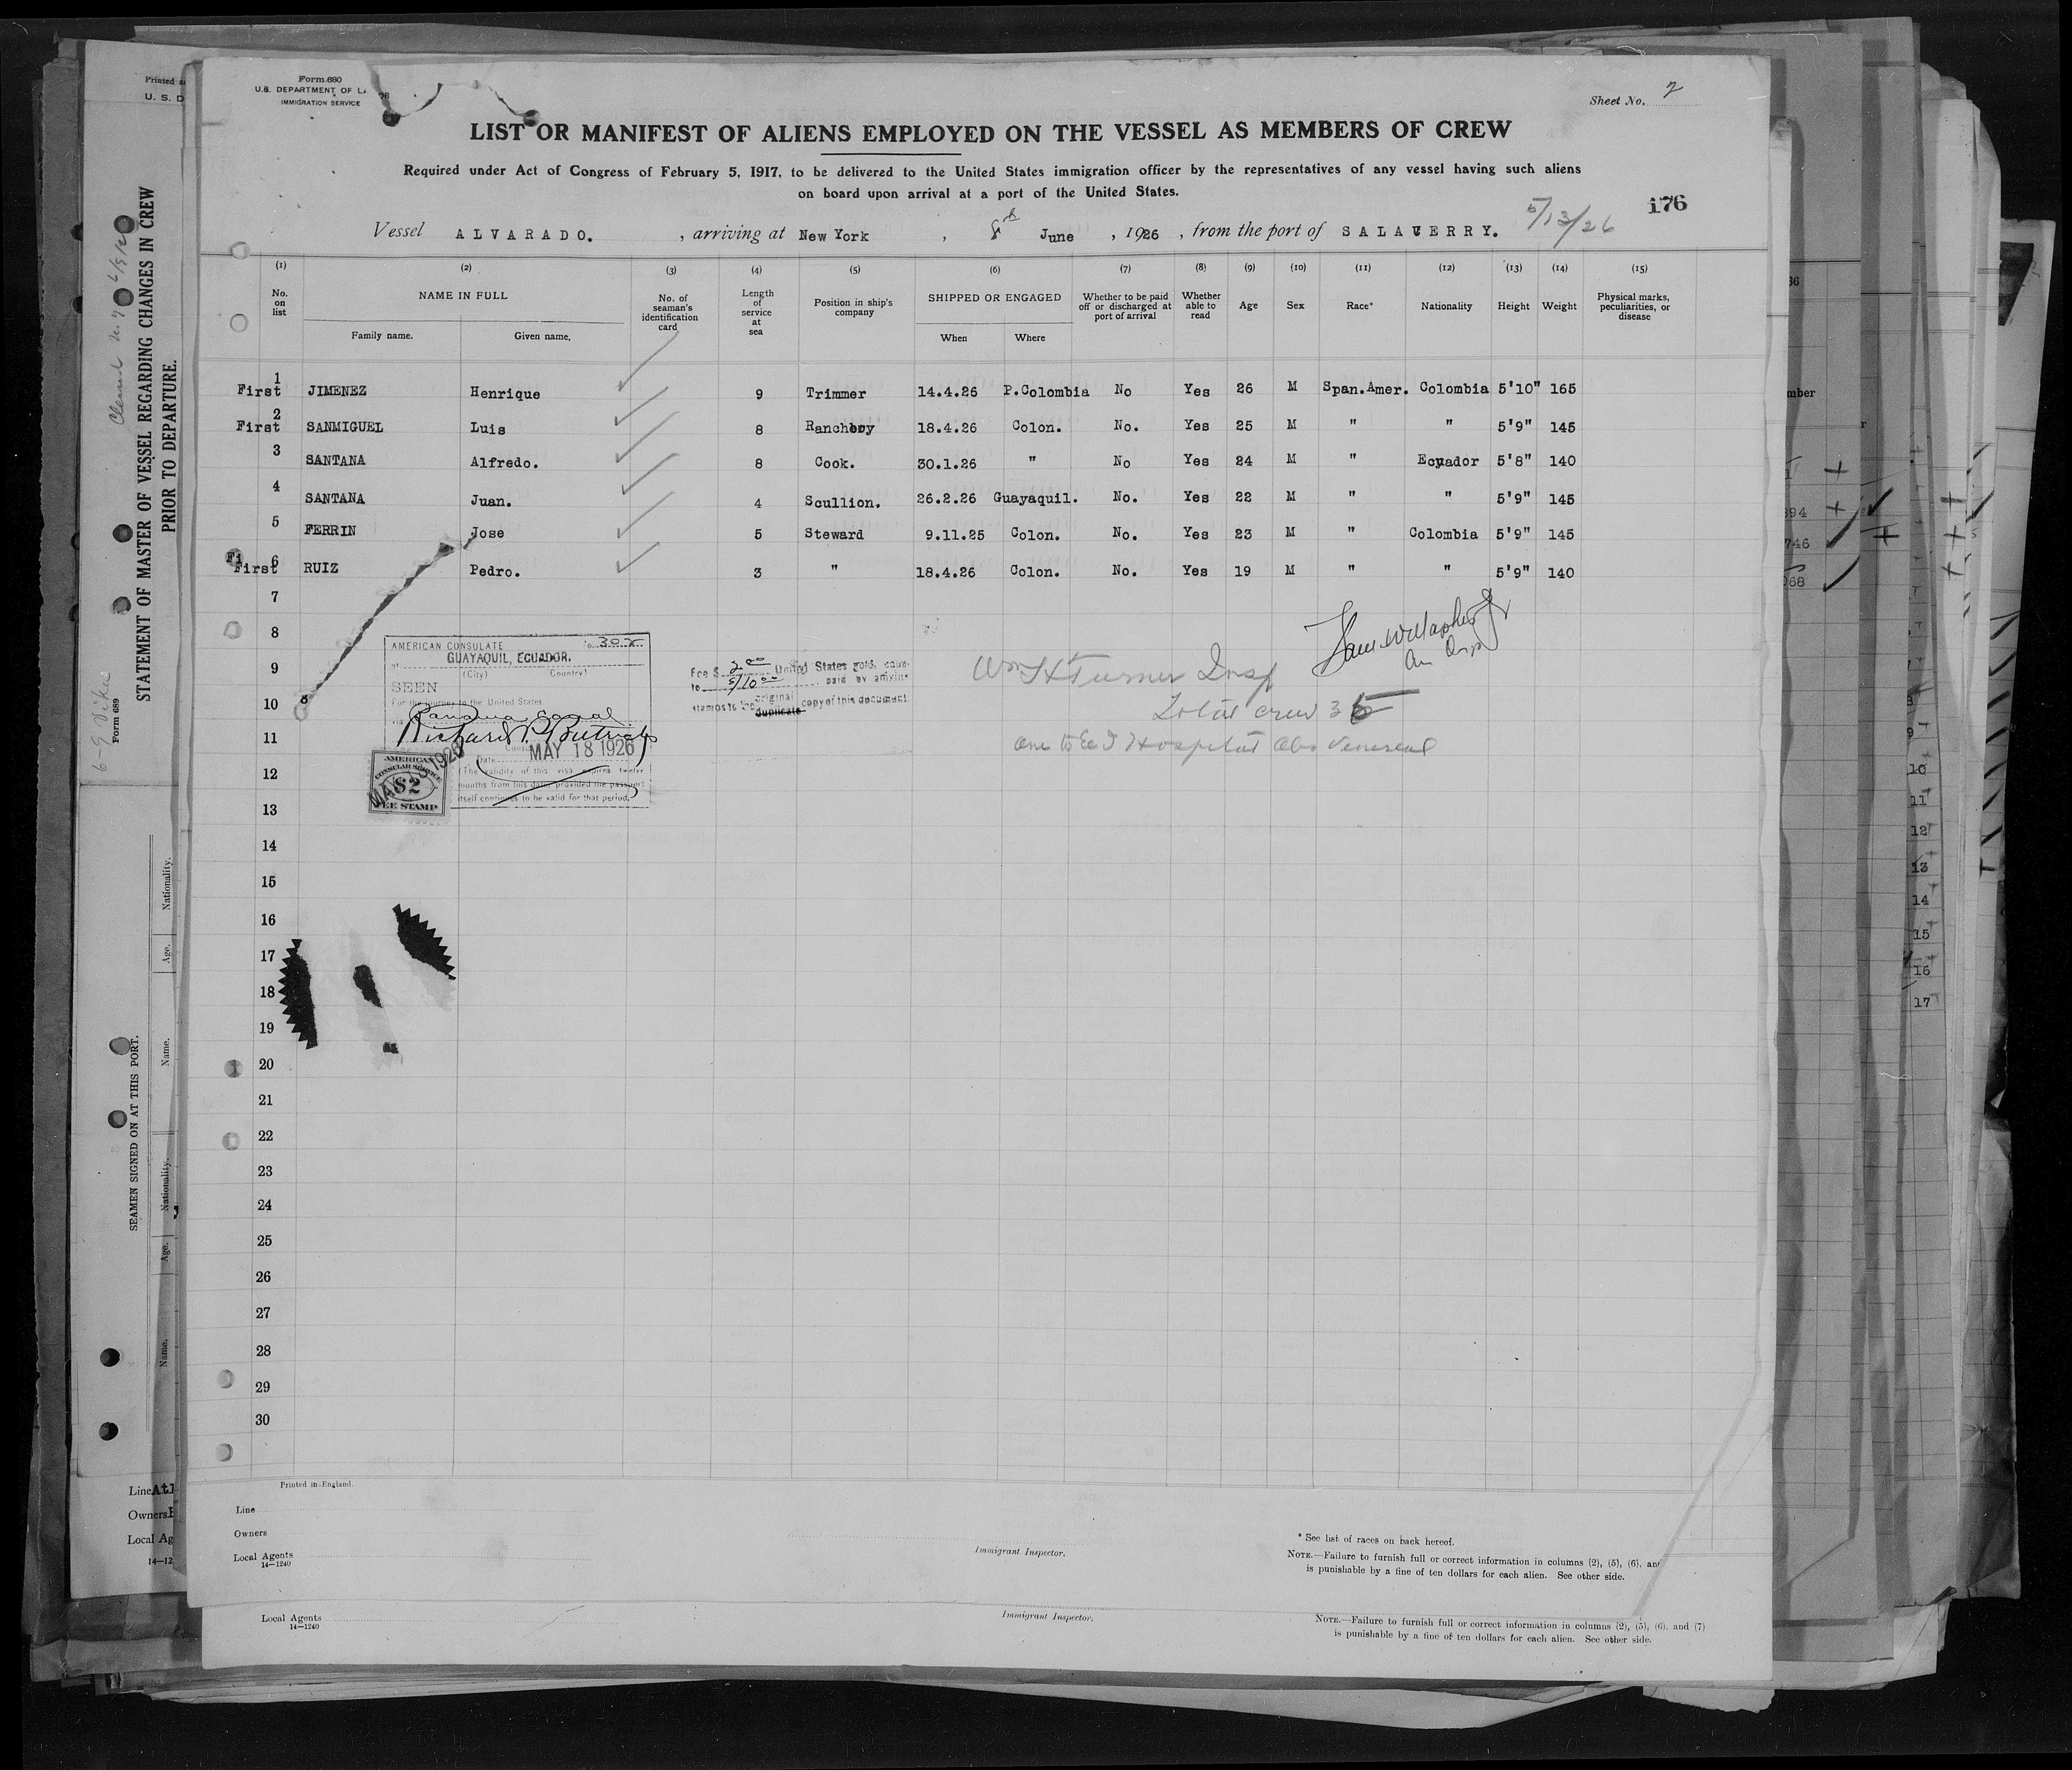 Form 680
U.S. DEPARTMENT OF LA
IMMIGRATION SERVICE
Sheet No. 2
LIST OR MANIFEST OF ALIENS EMPLOYED ON THE VESSEL AS MEMBERS OF CREW
Required under Act of Congress of February 5, 1917, to be delivered to the United States immigration officer by the representatives of any vessel having such aliens
on board upon arrival at a port of the United States.
5/13/26 176
Vessel ALVARADO. , arriving at New York , 8th June , 1926 , from the port of SALAVERRY.
(1) (2) (3) (4) (5) (6) (7) (8) (9) (10) (11) (12) (13) (14) (15)
No. on list
NAME IN FULL
Family name. Given name.
No. of seaman's identification card
Length of service at sea
Position in ship's company
SHIPPED OR ENGAGED
When Where
Whether to be paid off or discharged at port of arrival
Whether able to read
Age
Sex
Race*
Nationality
Height
Weight
Physical marks, peculiarities, or disease
1 First JIMENEZ Henrique 9 Trimmer 14.4.26 P.Colombia No Yes 26 M Span.Amer. Colombia 5'10" 165
2 First SANMIGUEL Luis 8 18.4.26 Colon. No. Yes 25 M " " 5'9" 145
3 SANTANA Alfredo. 8 Cook. 30.1.26 " No Yes 24 M " Ecuador 5'8" 140
4 SANTANA Juan. 4 Scullion. 26.2.26 Guayaquil. No. Yes 22 M " " 5'9" 145
5 FERRIN Jose 5 Steward 9.11.25 Colon. No. Yes 23 M " Colombia 5'9" 145
6 First RUIZ Pedro. 3 " 18.4.26 Colon. No. Yes 19 M " " 5'9" 140
7
8
9
10
11
12
13
14
15
16
17
18
19
20
21
22
23
24
25
26
27
28
29
30
AMERICAN CONSULATE
GUAYAQUIL, ECUADOR.
(City) (Country)
SEEN
For the journey to the United States
via Panama Canal
MAY 18 1926
Date
(The validity of this visa expires twelve
months from this date, provided the passport
itself continues to be valid for that period.
AMERICAN
CONSULAR SERVICE
$2
FEE STAMP
Fee $ 2.00 United States gold,
paid by affixing
stamps to the original
duplicate copy of this document.
Wm H Turner Insp
Total crew 35
one to E I Hospital
Printed in England.
Line
Owners
Local Agents
14—1240
Immigrant Inspector.
* See list of races on back hereof.
NOTE.—Failure to furnish full or correct information in columns (2), (5), (6), and
is punishable by a fine of ten dollars for each alien. See other side.
Local Agents
14—1240
Immigrant Inspector.
NOTE.—Failure to furnish full or correct information in columns (2), (5), (6), and (7)
is punishable by a fine of ten dollars for each alien. See other side.
Printed
U. S. D
STATEMENT OF MASTER OF VESSEL REGARDING CHANGES IN CREW
PRIOR TO DEPARTURE.
Form 689
SEAMEN SIGNED ON AT THIS PORT.
Name. Age. Nationality. Name. Age. Nationality.
Line Atl
Owners
Local Ag
14—12
mber
394
746
068
9
10
11
12
13
14
15
16
17